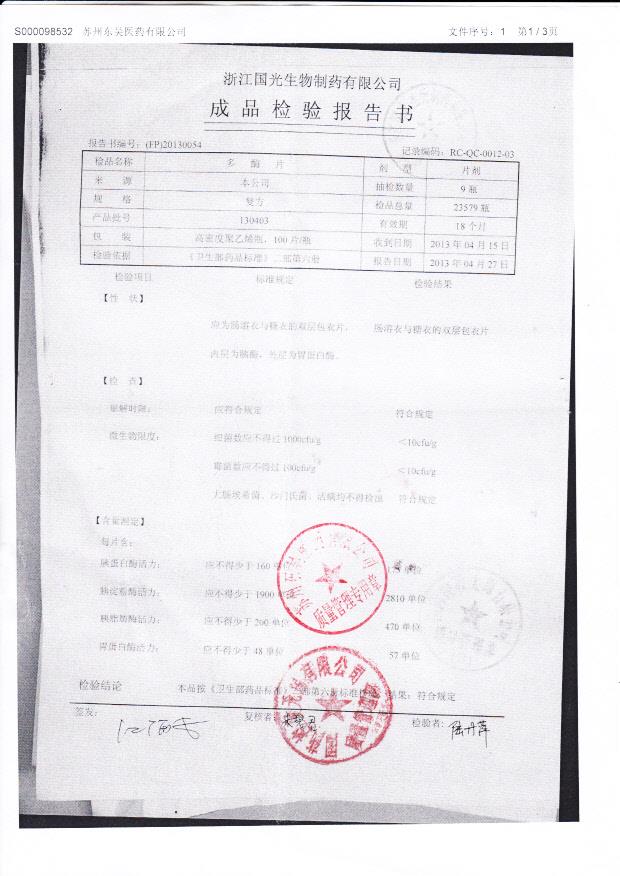 S000098532 苏州东吴医药有限公司 文件序号：1 第1/3页
浙江国光生物制药有限公司
成品检验报告书
报告书编号：(FP)20130054 记录编码：RC-QC-0012-03
检品名称 多酶片 剂型 片剂
来源 本公司 抽检数量 9瓶
规格 复方 检品总量 23579瓶
产品批号 130403 有效期 18个月
包装 高密度聚乙烯瓶，100片/瓶 收到日期 2013年04月15日
检验依据 《卫生部药品标准》二部第六册 报告日期 2013年04月27日
检验项目 标准规定 检验结果
【性状】
应为肠溶衣与糖衣的双层包衣片， 肠溶衣与糖衣的双层包衣片
内层为胰酶，外层为胃蛋白酶。
【检查】
崩解时限： 应符合规定 符合规定
微生物限度： 细菌数应不得过1000cfu/g <10cfu/g
霉菌数应不得过100cfu/g <10cfu/g
大肠埃希菌、沙门氏菌、活螨均不得检出 符合规定
【含量测定】
每片含：
胰蛋白酶活力： 应不得少于160单位 单位
胰淀粉酶活力： 应不得少于1900单位 2810单位
胰脂肪酶活力： 应不得少于200单位 470单位
胃蛋白酶活力： 应不得少于48单位 57单位
质量管理专用章
检验结论 本品按《卫生部药品标准》二部第六册标准检验 结果：符合规定
签发： 复核者： 检验者：陆丹萍